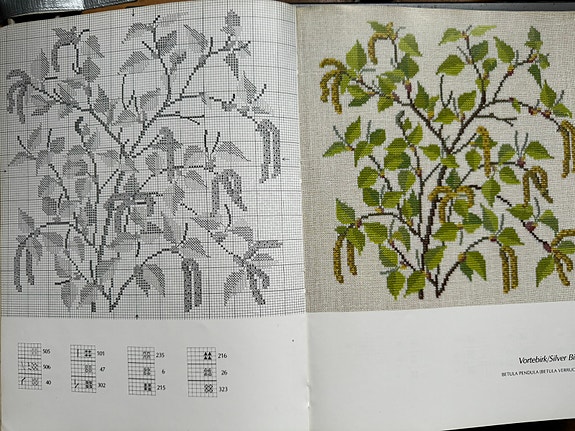 505 101 235 216
506 47 6 26
40 302 215 323
Vortebirk/Silver Bi
BETULA PENDULA (BETULA VERRUC